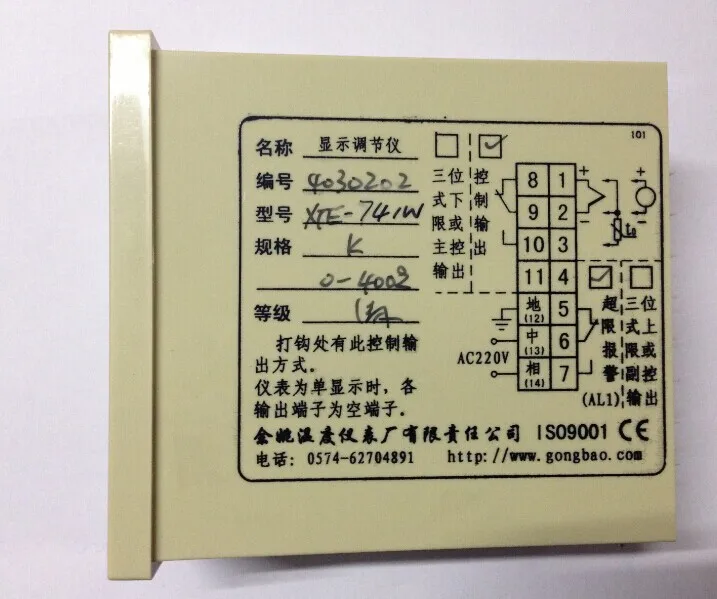 101
名称 显示调节仪
编号 4030202
型号 XTE-741W
规格 K
0-400
等级
打钩处有此控制输
出方式。
仪表为单显示时，各
输出端子为空端子。
三位
式下
限或
主控
输出
控制输出
8 1 + +
9 2 - -
10 3
11 4
地(12) 5
中(13) 6
相(14) 7
AC220V
超限报警
(AL1)
三位
式上
限或
副控
输出
余姚温度仪表厂有限责任公司 ISO9001 CE
电话：0574-62704891 http://www.gongbao.com